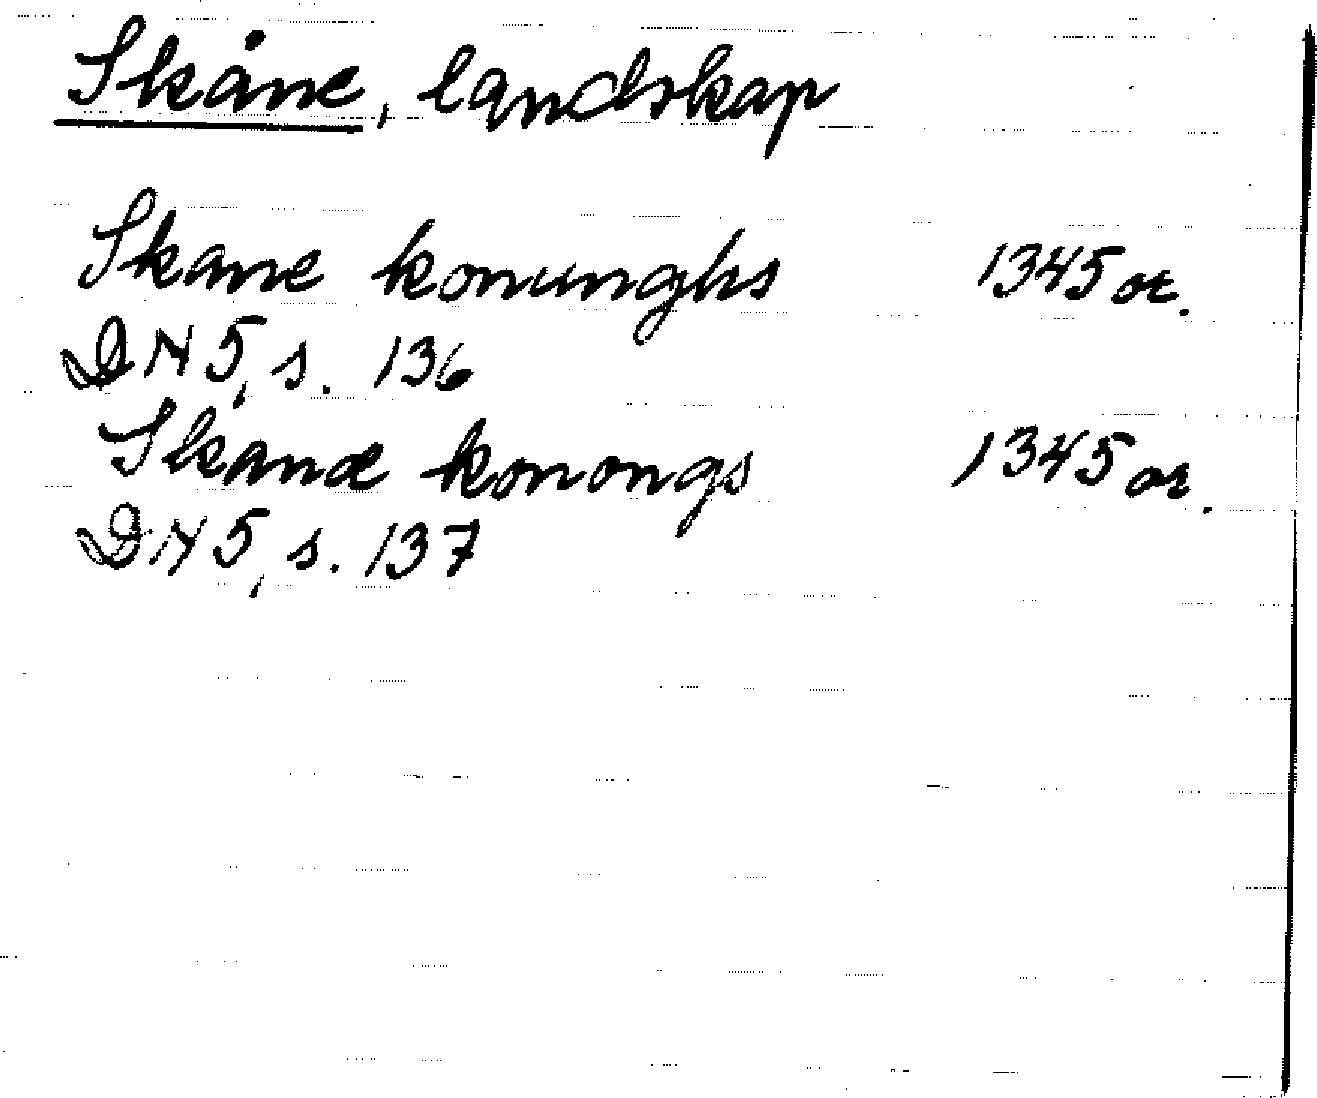 Skåne, landskap
Skane konunghs 1345 or.
DN 5, s. 136
Skanæ konongs 1345 or.
DN 5, s. 137